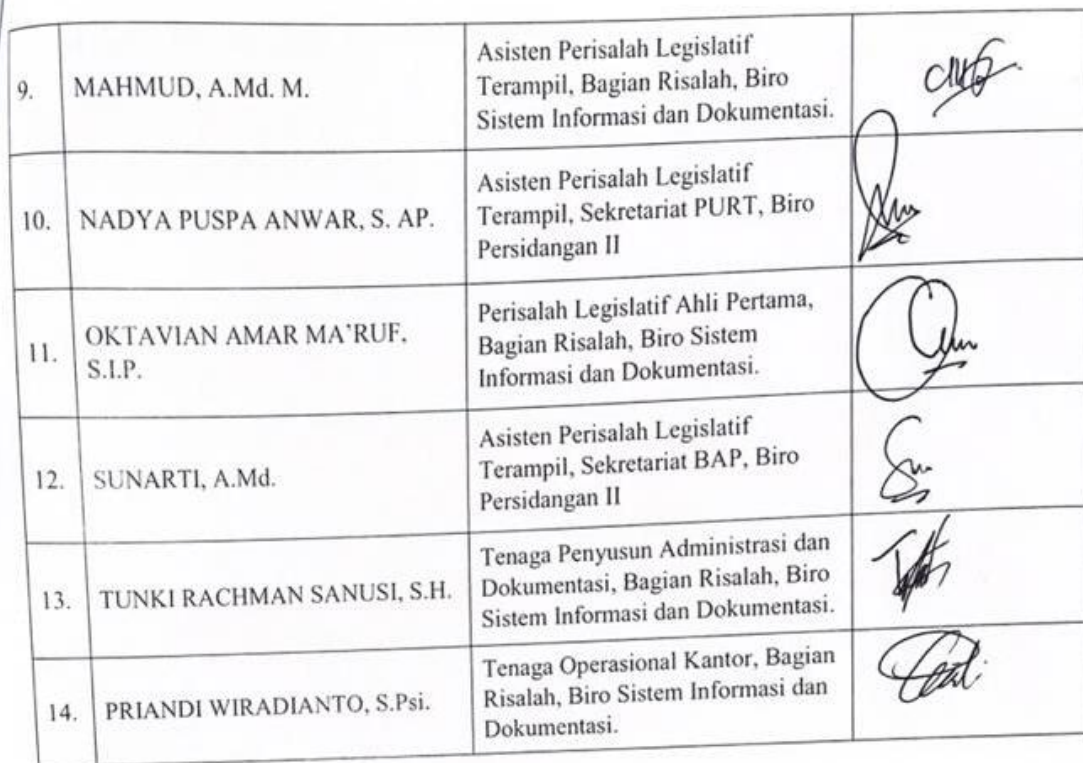 9.
MAHMUD, A.Md. M.
Asisten Perisalah Legislatif
Terampil, Bagian Risalah, Biro
Sistem Informasi dan Dokumentasi.
10.
NADYA PUSPA ANWAR, S. AP.
Asisten Perisalah Legislatif
Terampil, Sekretariat PURT, Biro
Persidangan II
11.
OKTAVIAN AMAR MA'RUF,
S.I.P.
Perisalah Legislatif Ahli Pertama,
Bagian Risalah, Biro Sistem
Informasi dan Dokumentasi.
12.
SUNARTI, A.Md.
Asisten Perisalah Legislatif
Terampil, Sekretariat BAP, Biro
Persidangan II
13.
TUNKI RACHMAN SANUSI, S.H.
Tenaga Penyusun Administrasi dan
Dokumentasi, Bagian Risalah, Biro
Sistem Informasi dan Dokumentasi.
14.
PRIANDI WIRADIANTO, S.Psi.
Tenaga Operasional Kantor, Bagian
Risalah, Biro Sistem Informasi dan
Dokumentasi.